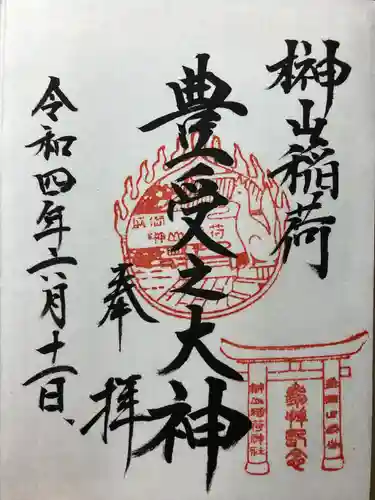 榊山稲荷
豊受之大神
奉拝
令和四年六月十一日
榊山稲荷神社
参拝記念